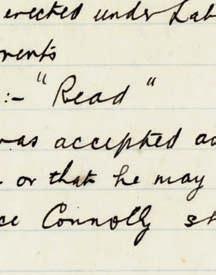 erected under Lab
ments
:- "Read"
was accepted ad
or that he may
ce Connolly sh